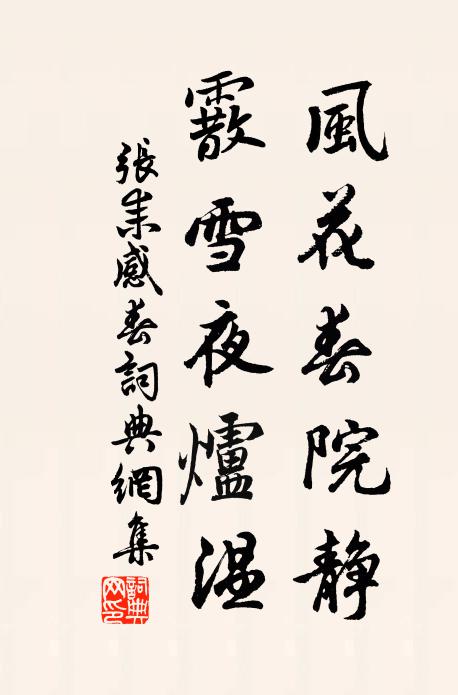 風花春院静
霰雪夜爐温
張耒感春詞典網集
詞典网印